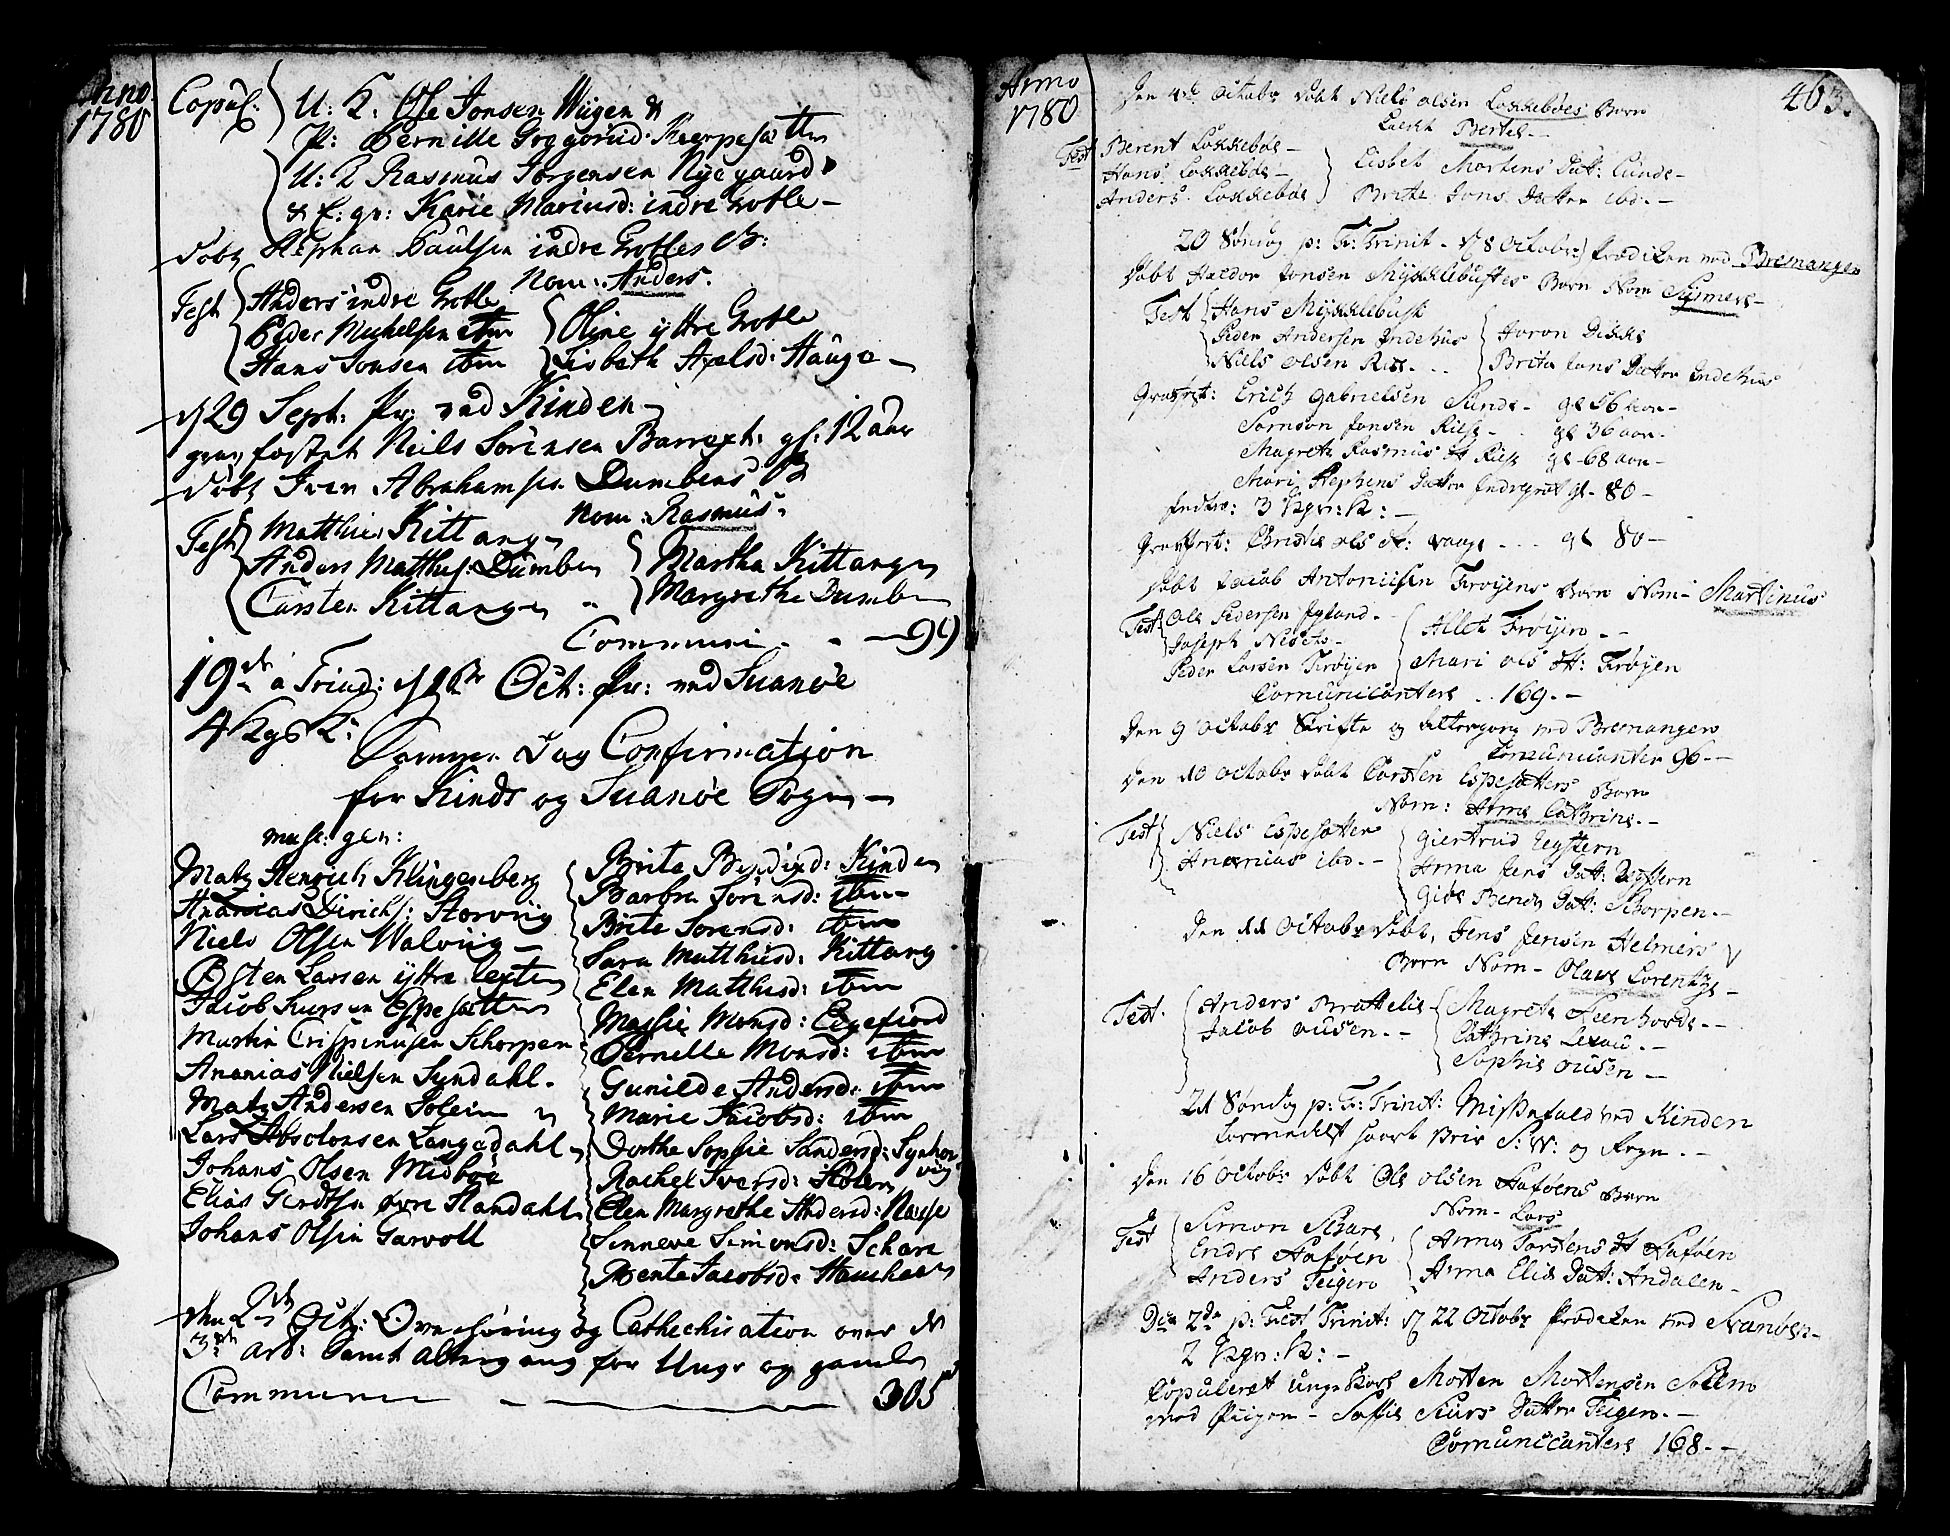 Anno
1780
Copul: U: K. Ole Jonsen Wiigen &
P: Pernille Greggorisd: Keerpesætter
U: K Rasmus Jörgensen Nÿegaard
& E: qv: Karie Mariusd: indre Grotle
Döbt Stephan Paulsen indre Grotles B:
Nom: Anders.
Test Anders indre Grotle
Peder Michelsen ibm
Hans Jonsen ibm
Oline yttre Grotle
Lisbeth Axelsd: Hauge
d 29 Sept: Pr: ved Kinden
grav fæstet Niels Sörensen Barrext: gl: 12 aar
Döbt Iver Abrahamsen Dumbens B
Nom: Rasmus.
Test Matthies Kittang
Anders Matthis: Dumben
Carsten Kittangen
Martha Kittangen
Margrethe Dumben
Communi. 99
19de a Trinit: d 1te Oct: Pr: ved Suanöe
4 Kgs K:
Samme Dag Confirmation
for Kinds og Suanöe Sogn
musc: gen:
Matz Henrich Klingenberg
Ananias Dirichs: Storviig
Niels Olsen Walviig
Östen Larsen yttre Lexten
Jacob Siursen Espesætter
Martin Crispinusen Schorpen
Ananias Nielsen Syndahl.
Matz Andersen Soleim
Lars Absolonsen Langedahl
Johans Olsen Midböe
Elias Gerdtsen övre Standahl
Johans Olsen Garvoll
Brite Bendixd: Kinden
Barbra Sörensd: ibm
Brite Sörensd: ibm
Sara Matthisd: Kittang
Elen Matthisd: ibm
Massie Monsd: Eegefiord
Pernelle Monsd: ibm
Gunilde Andersd: ibm
Marie Jacobsd: ibm
Dorthe Sophie Sandersd: Synhor
viig
Rachel Iversd: Stolen
Elen Margrethe Andersd: Nause
Sinneve Simonsd: Schare
Bente Jacobsd: Stauchæn
den 2den Oct: Overhöring og Cathechisation over de
3de art: Samt altergang for Unge og gamle
Communi 305
Anno
1780
463.
Den 4de Octobr döbt Niels Olsen Lokkeböes Born
kaldt Bertel.
Test Berent Lokkeböe
Hans Lokkeböe
Anders Lokkeböe
Lisbet Mortens Datt: Lunde
Brite Jons Datter ibd.
20 Söndag p: F: Trinit. d 8 Octobr: Prædiken ved Bremanger
Döbt Haldor Jonsen Myklebustes Born Nom Synneve
Test Hans Myklebust
Peder Andersen Indehus
Niels Olsen Rise
Joron Dikke
Brita Jans Datter Indehus
Gravfæst: Erich Gabrielsen Sunde gl 56 aar
Samson Jonsen Rise gl 36 aar
Magrete Rasmus D Rise gl 68 aar
Mari Stephens Datter Indregrot gl. 80
Indtro: 3 Kgn: K:
Gravfæst: Christie Ols D: Vaage gl 80
Döbt Jacob Antoniisen Fröyens Born Nom Martinus
Test Ole Pedersen Igland
Joseph Nesets
Peder Larsen Fröyen
Allet Fröyen
Mari Ols D: Fröyen
Comunicantere 169.
Den 9 Octobr Skrifte og Altergang ved Bremanger
Comunicanter 96
Den 10 Octobr döbt Carsten Espesætters Born
Nom: Anne Cathrine.
Test Niels Espesætter
Ananias ibd.
Giertrud Leystern
Anna Jens Datt: Leystern
Gide Bends Datt: Schorpen.
Den 11 Octobr döbt, Jens Jensen Helmers
Born Nom Olave Lorentze
Test. Anders Brattelie
Jacob Ousen.
Magrete Steenhovde
Cathrine Lexau.
Sophie Ousen
21 Söndag p: F: Trinit: Missefald ved Kinden
formedelst haart Veir S: W: og Regn.
Den 16 Octobr döbt Ole Olsen Haföens Born
Nom. Lars
Test Simon Schare
Endre Haföen
Anders Teigen
Anna Torstens D Haföen
Anna Elis Datt: Andalen.
Die 22de p: Fest Trinit: d 22 Octobr Prædiken ved Svanöen
2 Kgn: K:
Copuleret unge Karl Morten Mortensen Solem
med Piigen Saffie Siurs Datter Teigen.
Comunicantere 168.